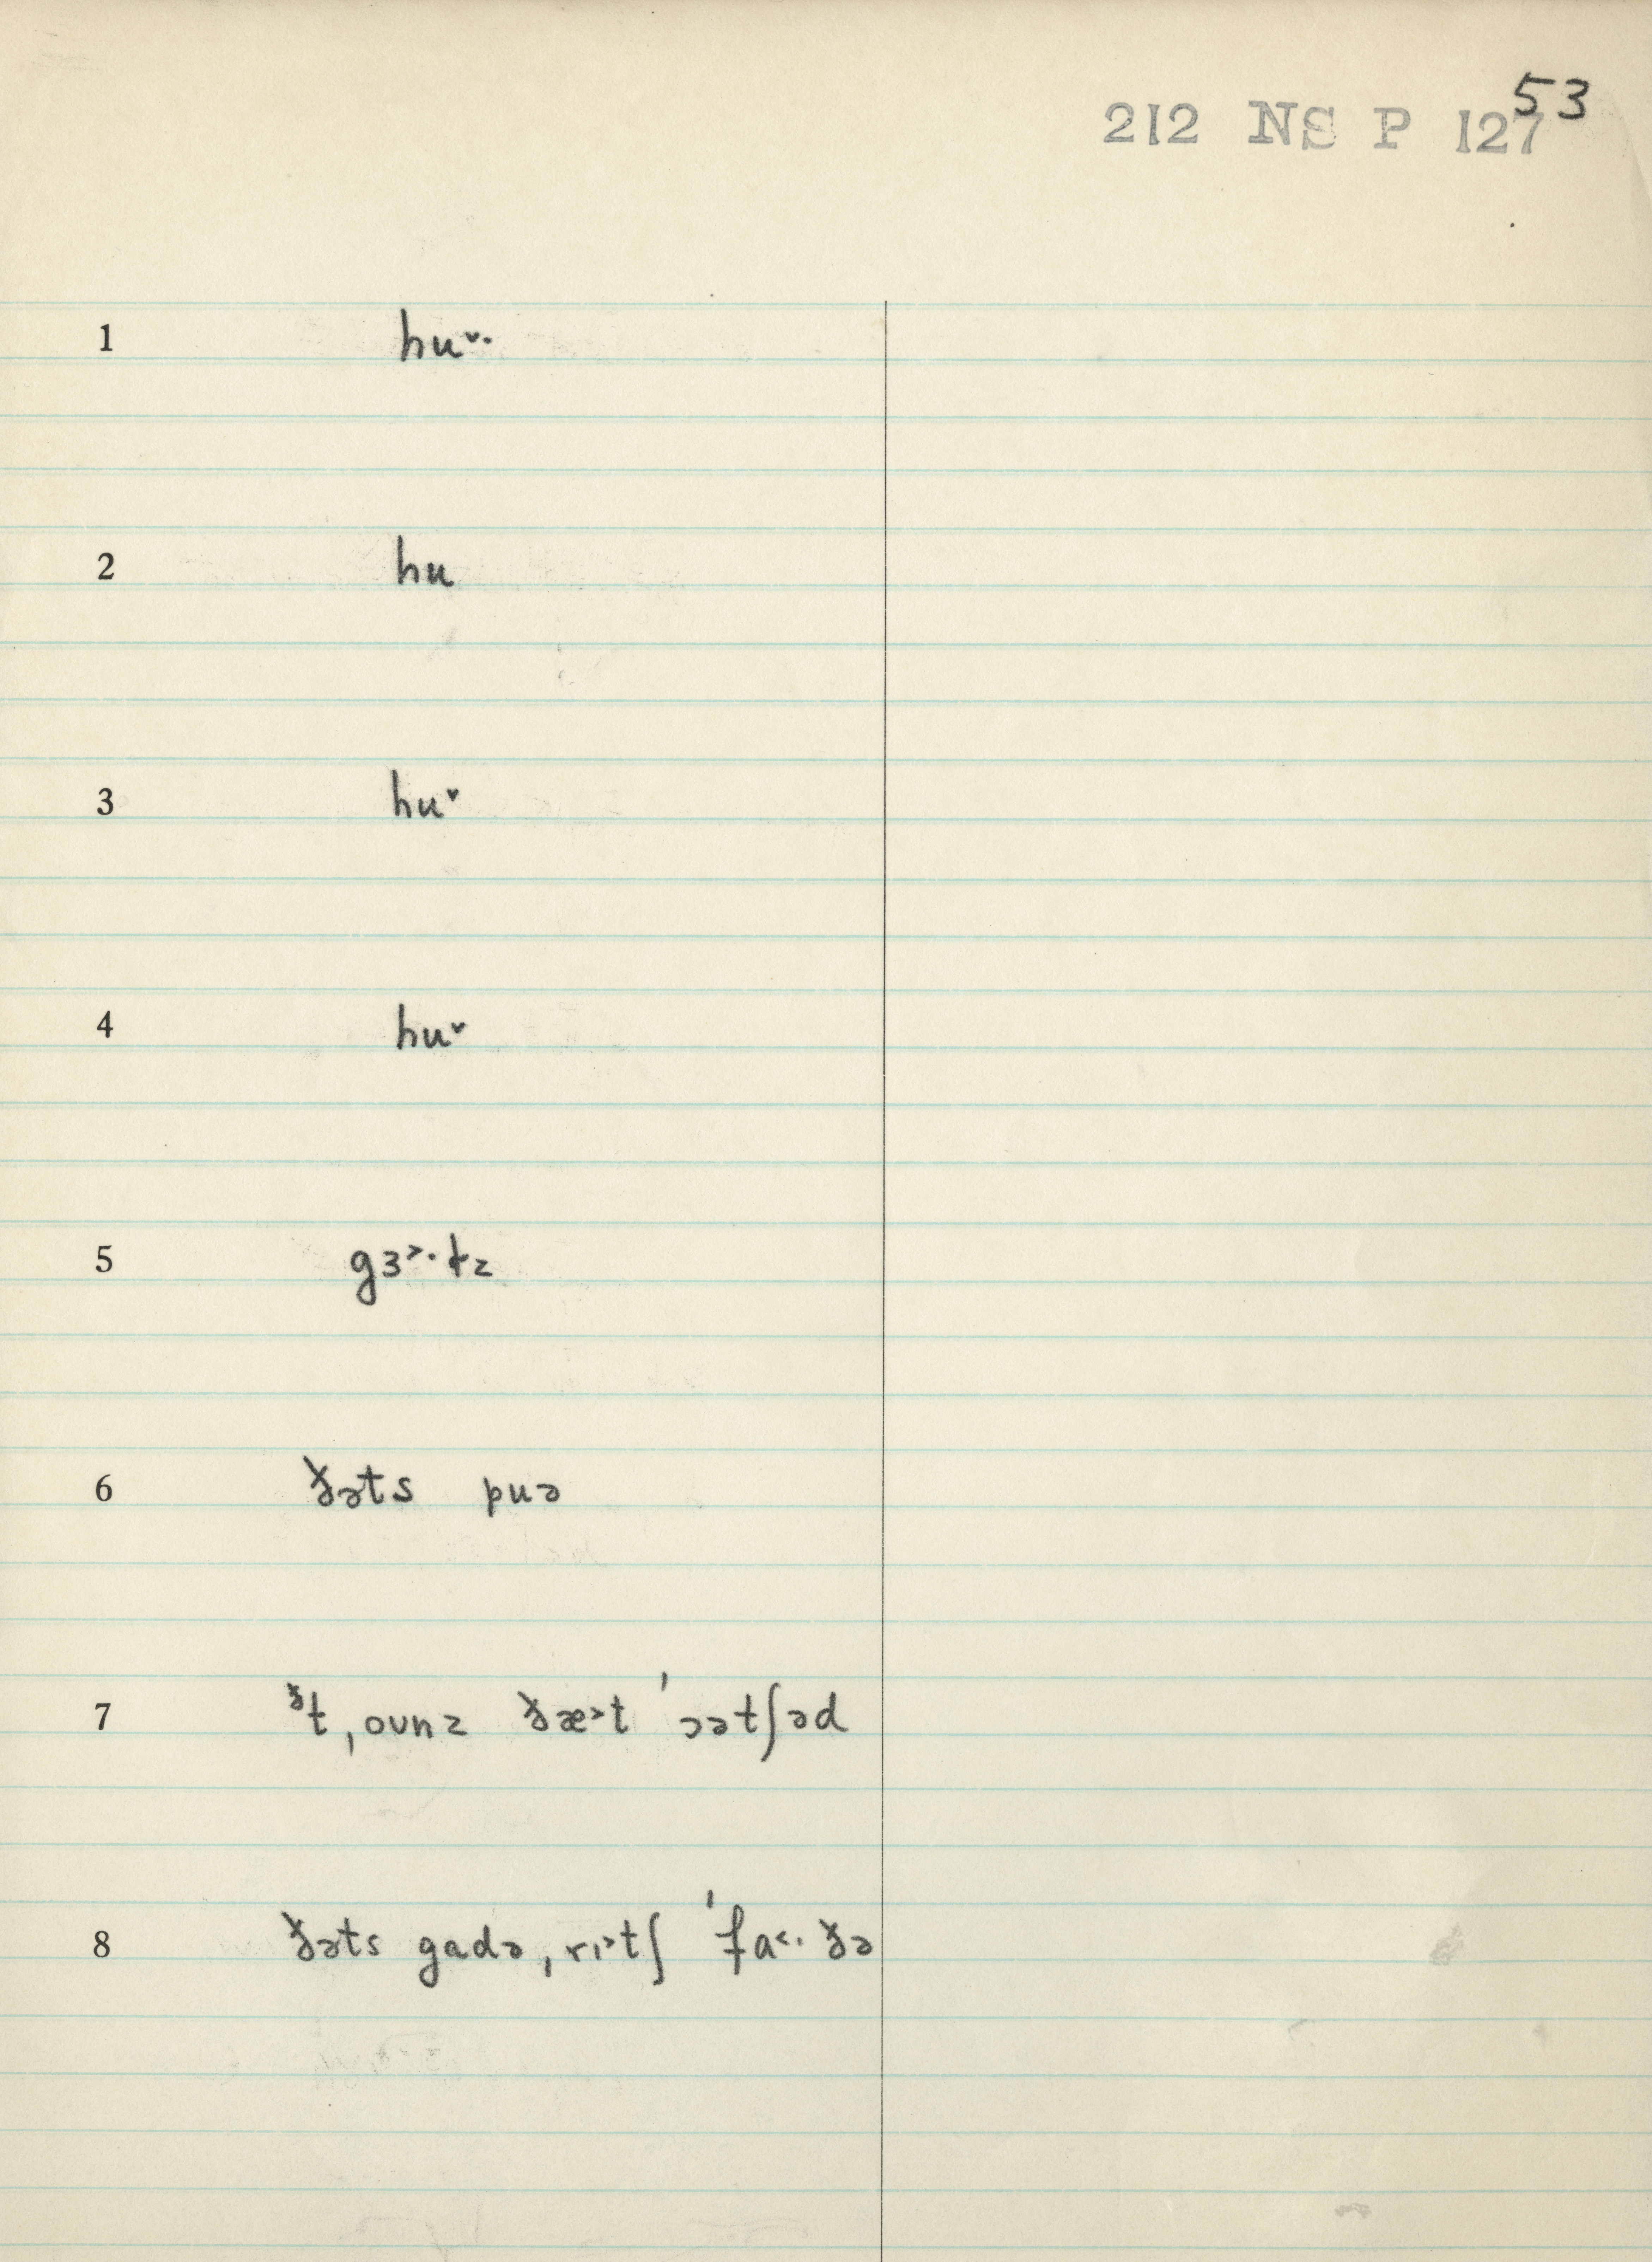 53
212 NS P 127
1 hu˅·
2 hu
3 hu˅
4 hu˅
5 gɜ˃·ɫz
6 ðəts puə
7 ᶞt ˌounz ðæ˃t ˈɔətʃəd
8 ðəts gadə ˌrɪ˃tʃ ˈfa˂· ðə